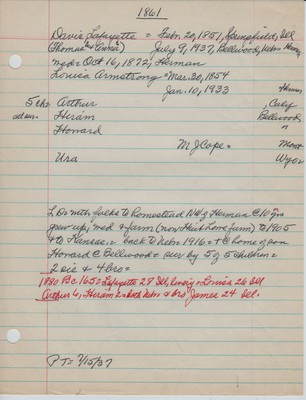 1861
Davis Lafayette = Febr. 20, 1851, Springfield, Ill
(Thomas & ) July 9, 1937, Bellwood, Nebr
med = Oct 16, 1872, Herman
Louisa Armstrong = Mar. 30, 1854
Jan. 10, 1933
5 ch = Arthur
Hiram
Bellwood
Howard
M J Cape = Mont
Ura Wyo =
L D = with folks to homestead NW of Herman @ 10 yrs
grew up, med & farm (now home farm) to 1905
& to Kansas, = back to Nebr 1916 = + @ home of son
Howard @ Bellwood = surv by 5 of 5 children =
2 sis & 4 bro =
1880 Bc 165 = Lafayette 28 Ill, = Louisa 26 Ill
Arthur 4, Hiram 2 = both Nebr & bro James 24 Ill.
P T = 7/15/37